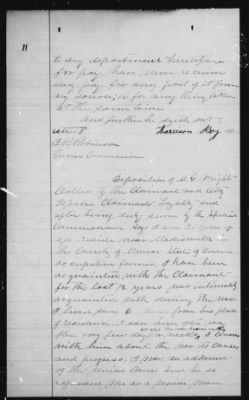 11
to any department heretofore
for pay, have never received
any pay for any part of it from
any source, or for any thing taken
at the same time
And further he sayeth not
attest Harrison Roy
Commissioner
Deposition of
Called by the Claimant
to prove Claimants Loyalty and
after being duly sworn by the Special
Commissioner says I am 31 years of
age reside near Madisonville in
the County of State of
occupation farmer I have been
acquainted with the Claimant
for the last 12 years, was intimately
acquainted with during the war
I lived from 6 from his place
of residence I saw him
every few days or weeks, I
with him about the war its causes
and progress. I was an adherent
of the Union Cause and he so
regarded me as a Union man